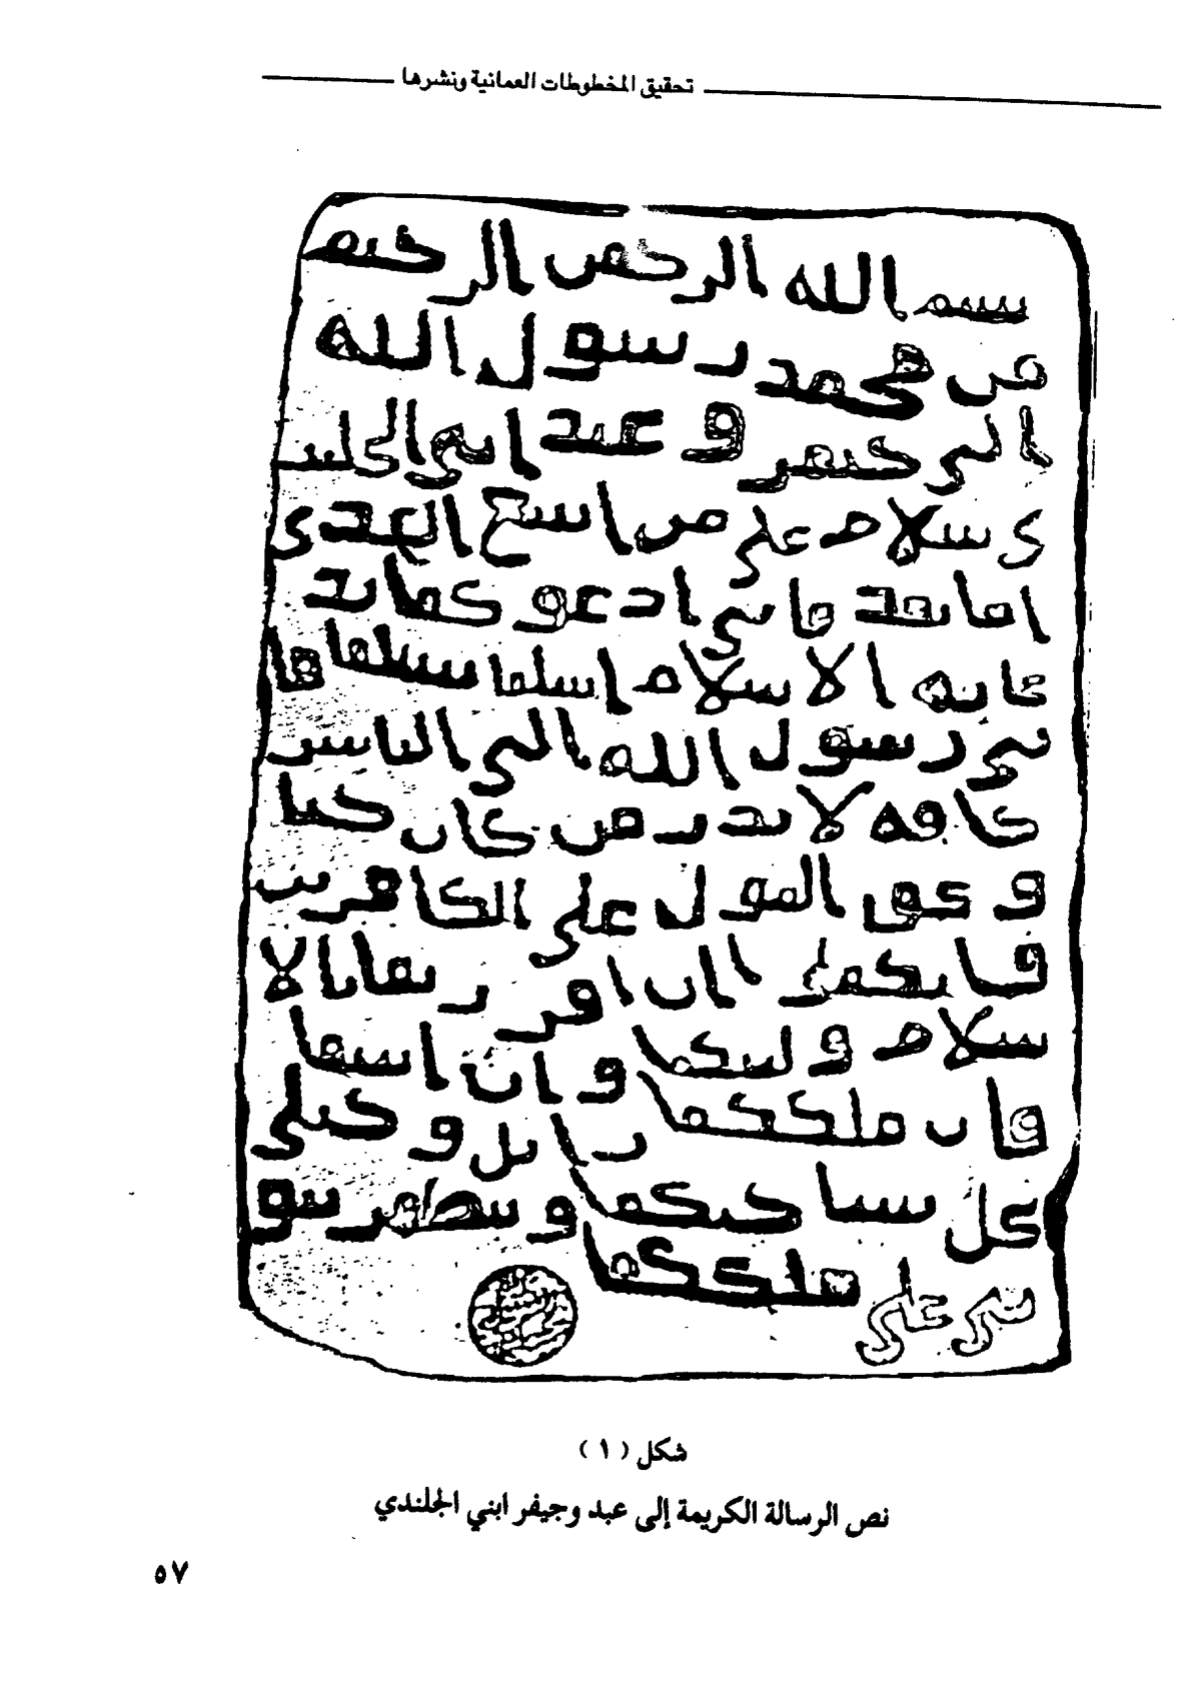 تحقيق المخطوطات العمانية ونشرها
بسم الله الرحمن الرحيم
من محمد رسول الله
الى جيفر وعبد ابنى الجلند
ى سلام على من اتبع الهدى
اما بعد فانى ادعوكما بد
عايه الاسلام اسلما تسلما فا
نى رسول الله الى الناس
كافه لانذر من كان حيا
ويحق القول على الكافرين
فانكما ان اقررتما بالا
سلام وليتكما وان ابيتما
فان ملككما زايل وخيلى
تحل بساحتكما وتظهر نبو
تى على ملككما
شكل ( ١ )
نص الرسالة الكريمة إلى عبد وجيفر ابني الجلندي
٥٧